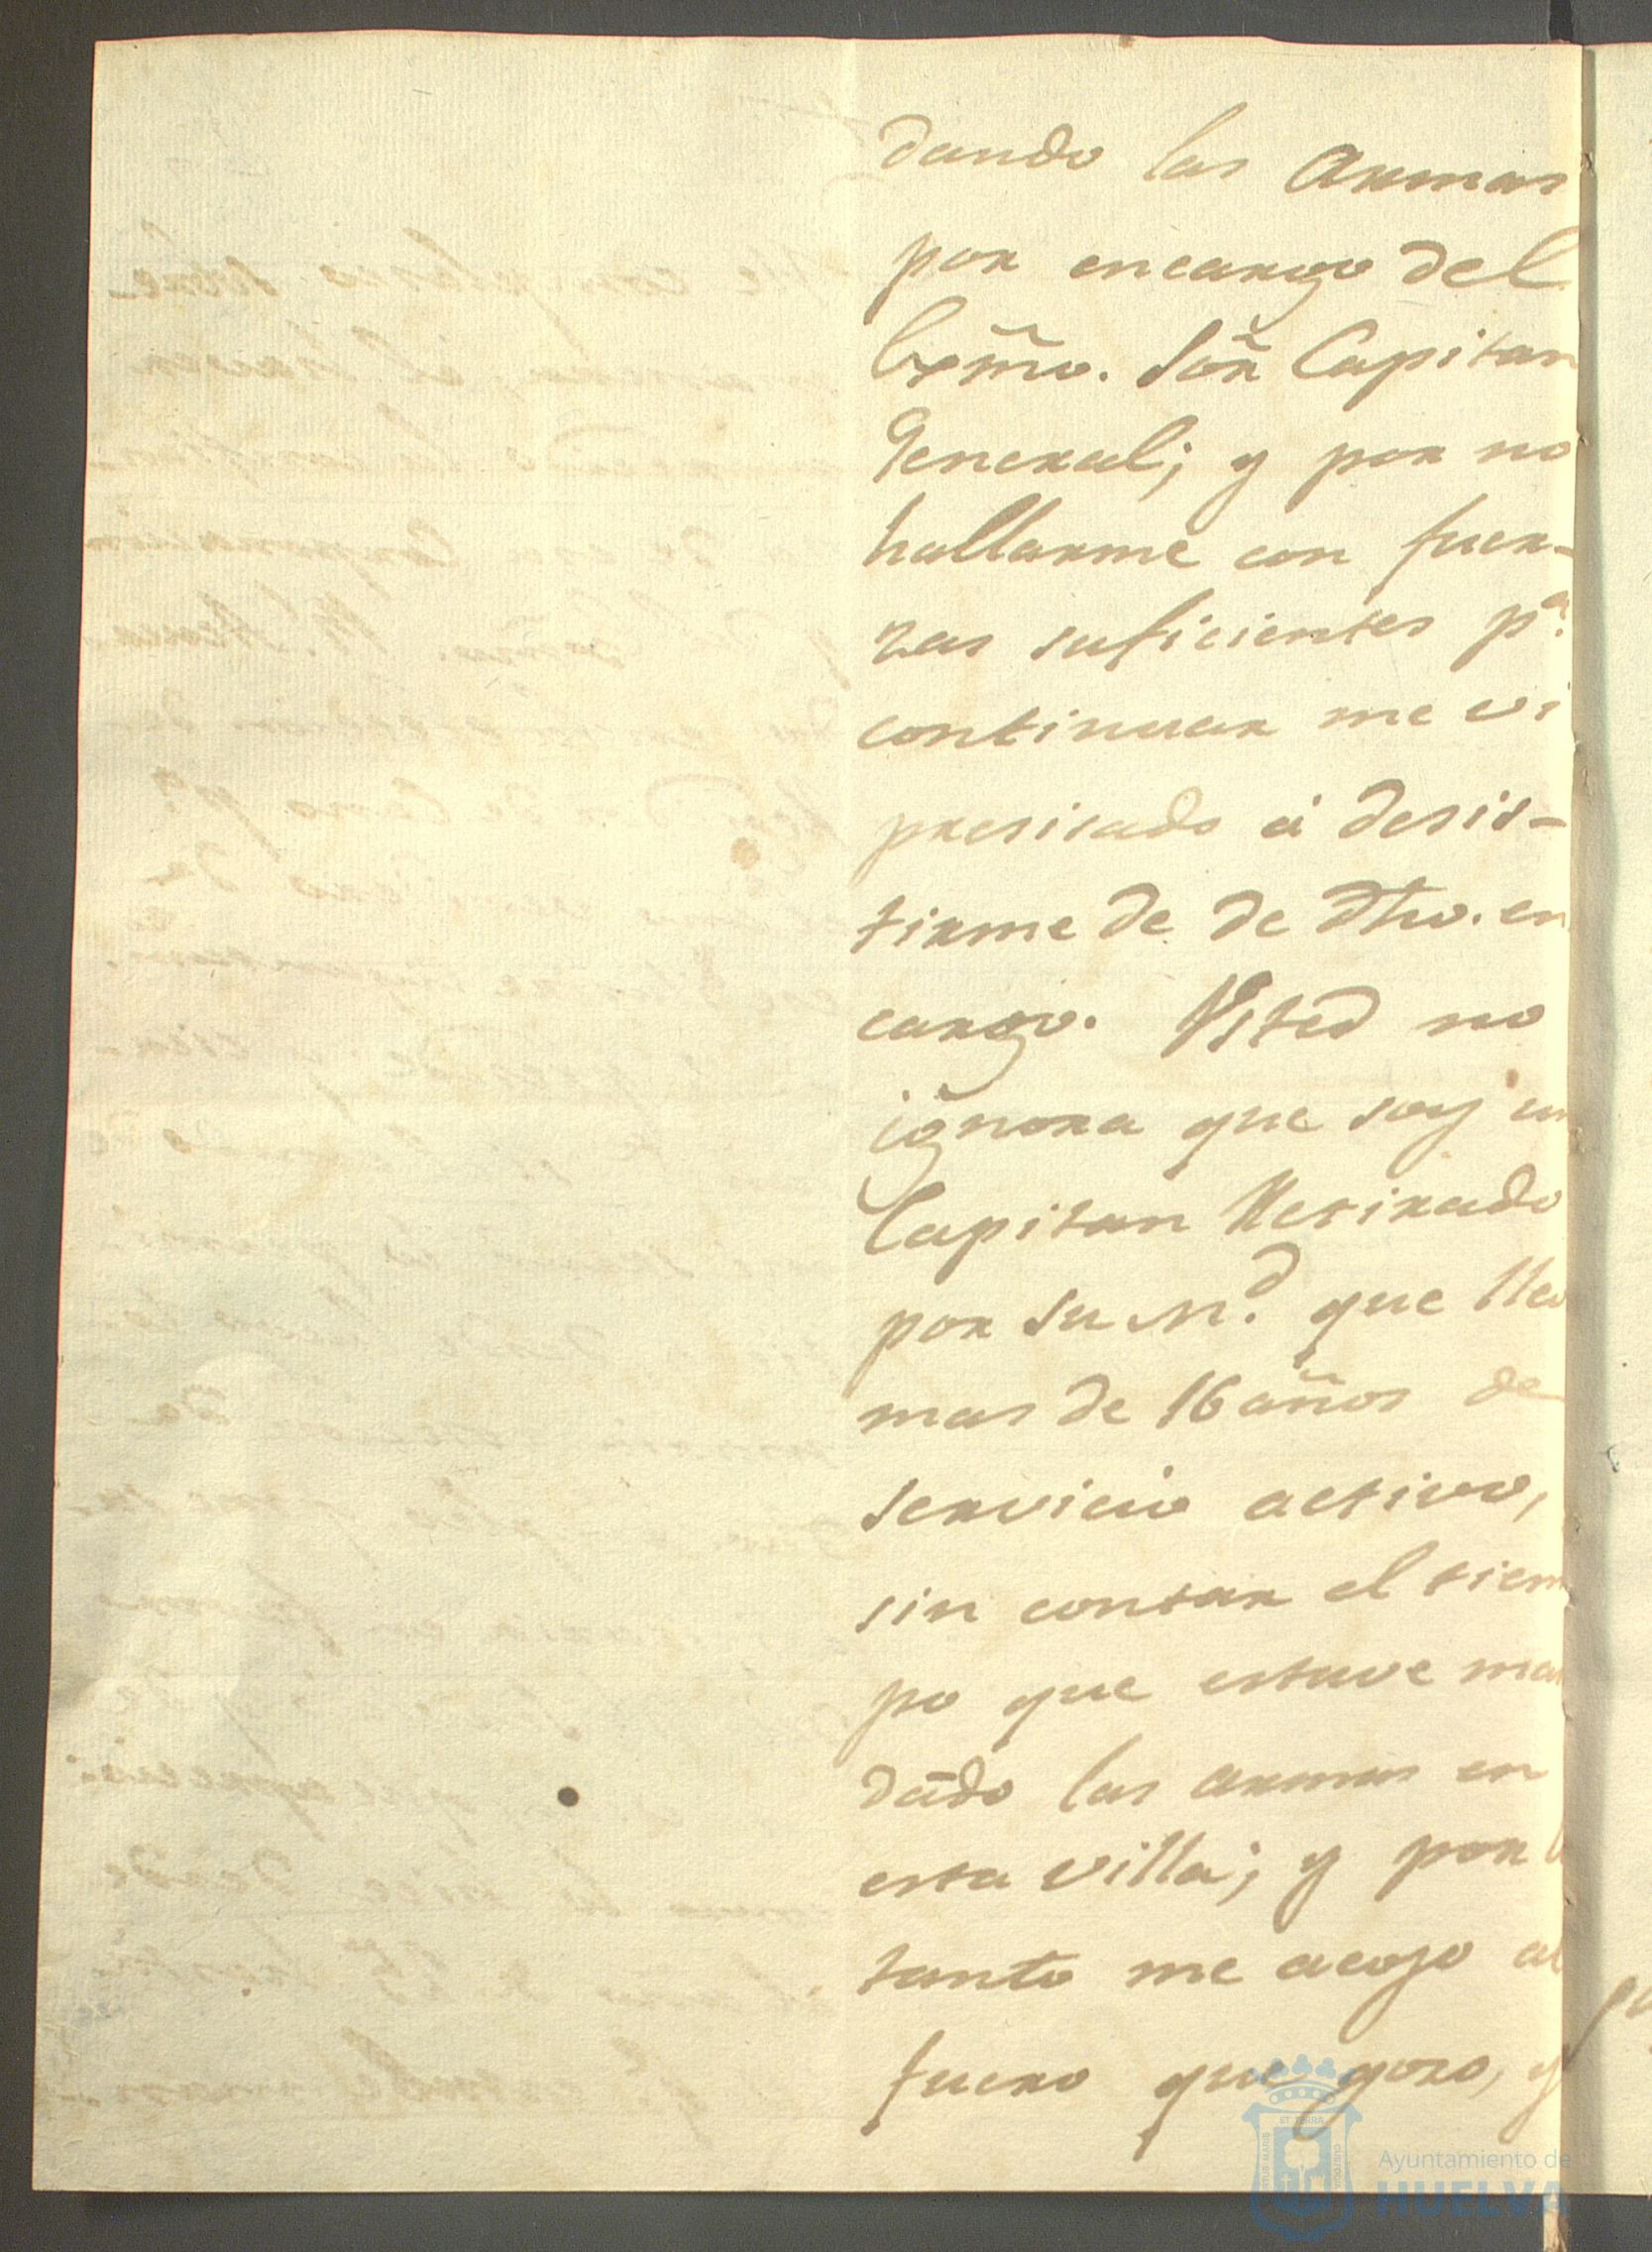 dando las Armas
por encargo del
Exmõ. Sõr Capitan
General; y por no
hallarme con fuer-
zas suficientes p.ª
continuar me vi
presisado á desis-
tirme de de dho. en
cargo. Vsted no
ignora que soy un
Capitan Retirado
por su M.d que llevo
mas de 16 años de
servicio activo,
sin contar el tiem
po que estuve man
dãdo las armas en
esta villa; y por lo
tanto me acojo al
fuero que gozo, y
Ayuntamiento de
HUELVA